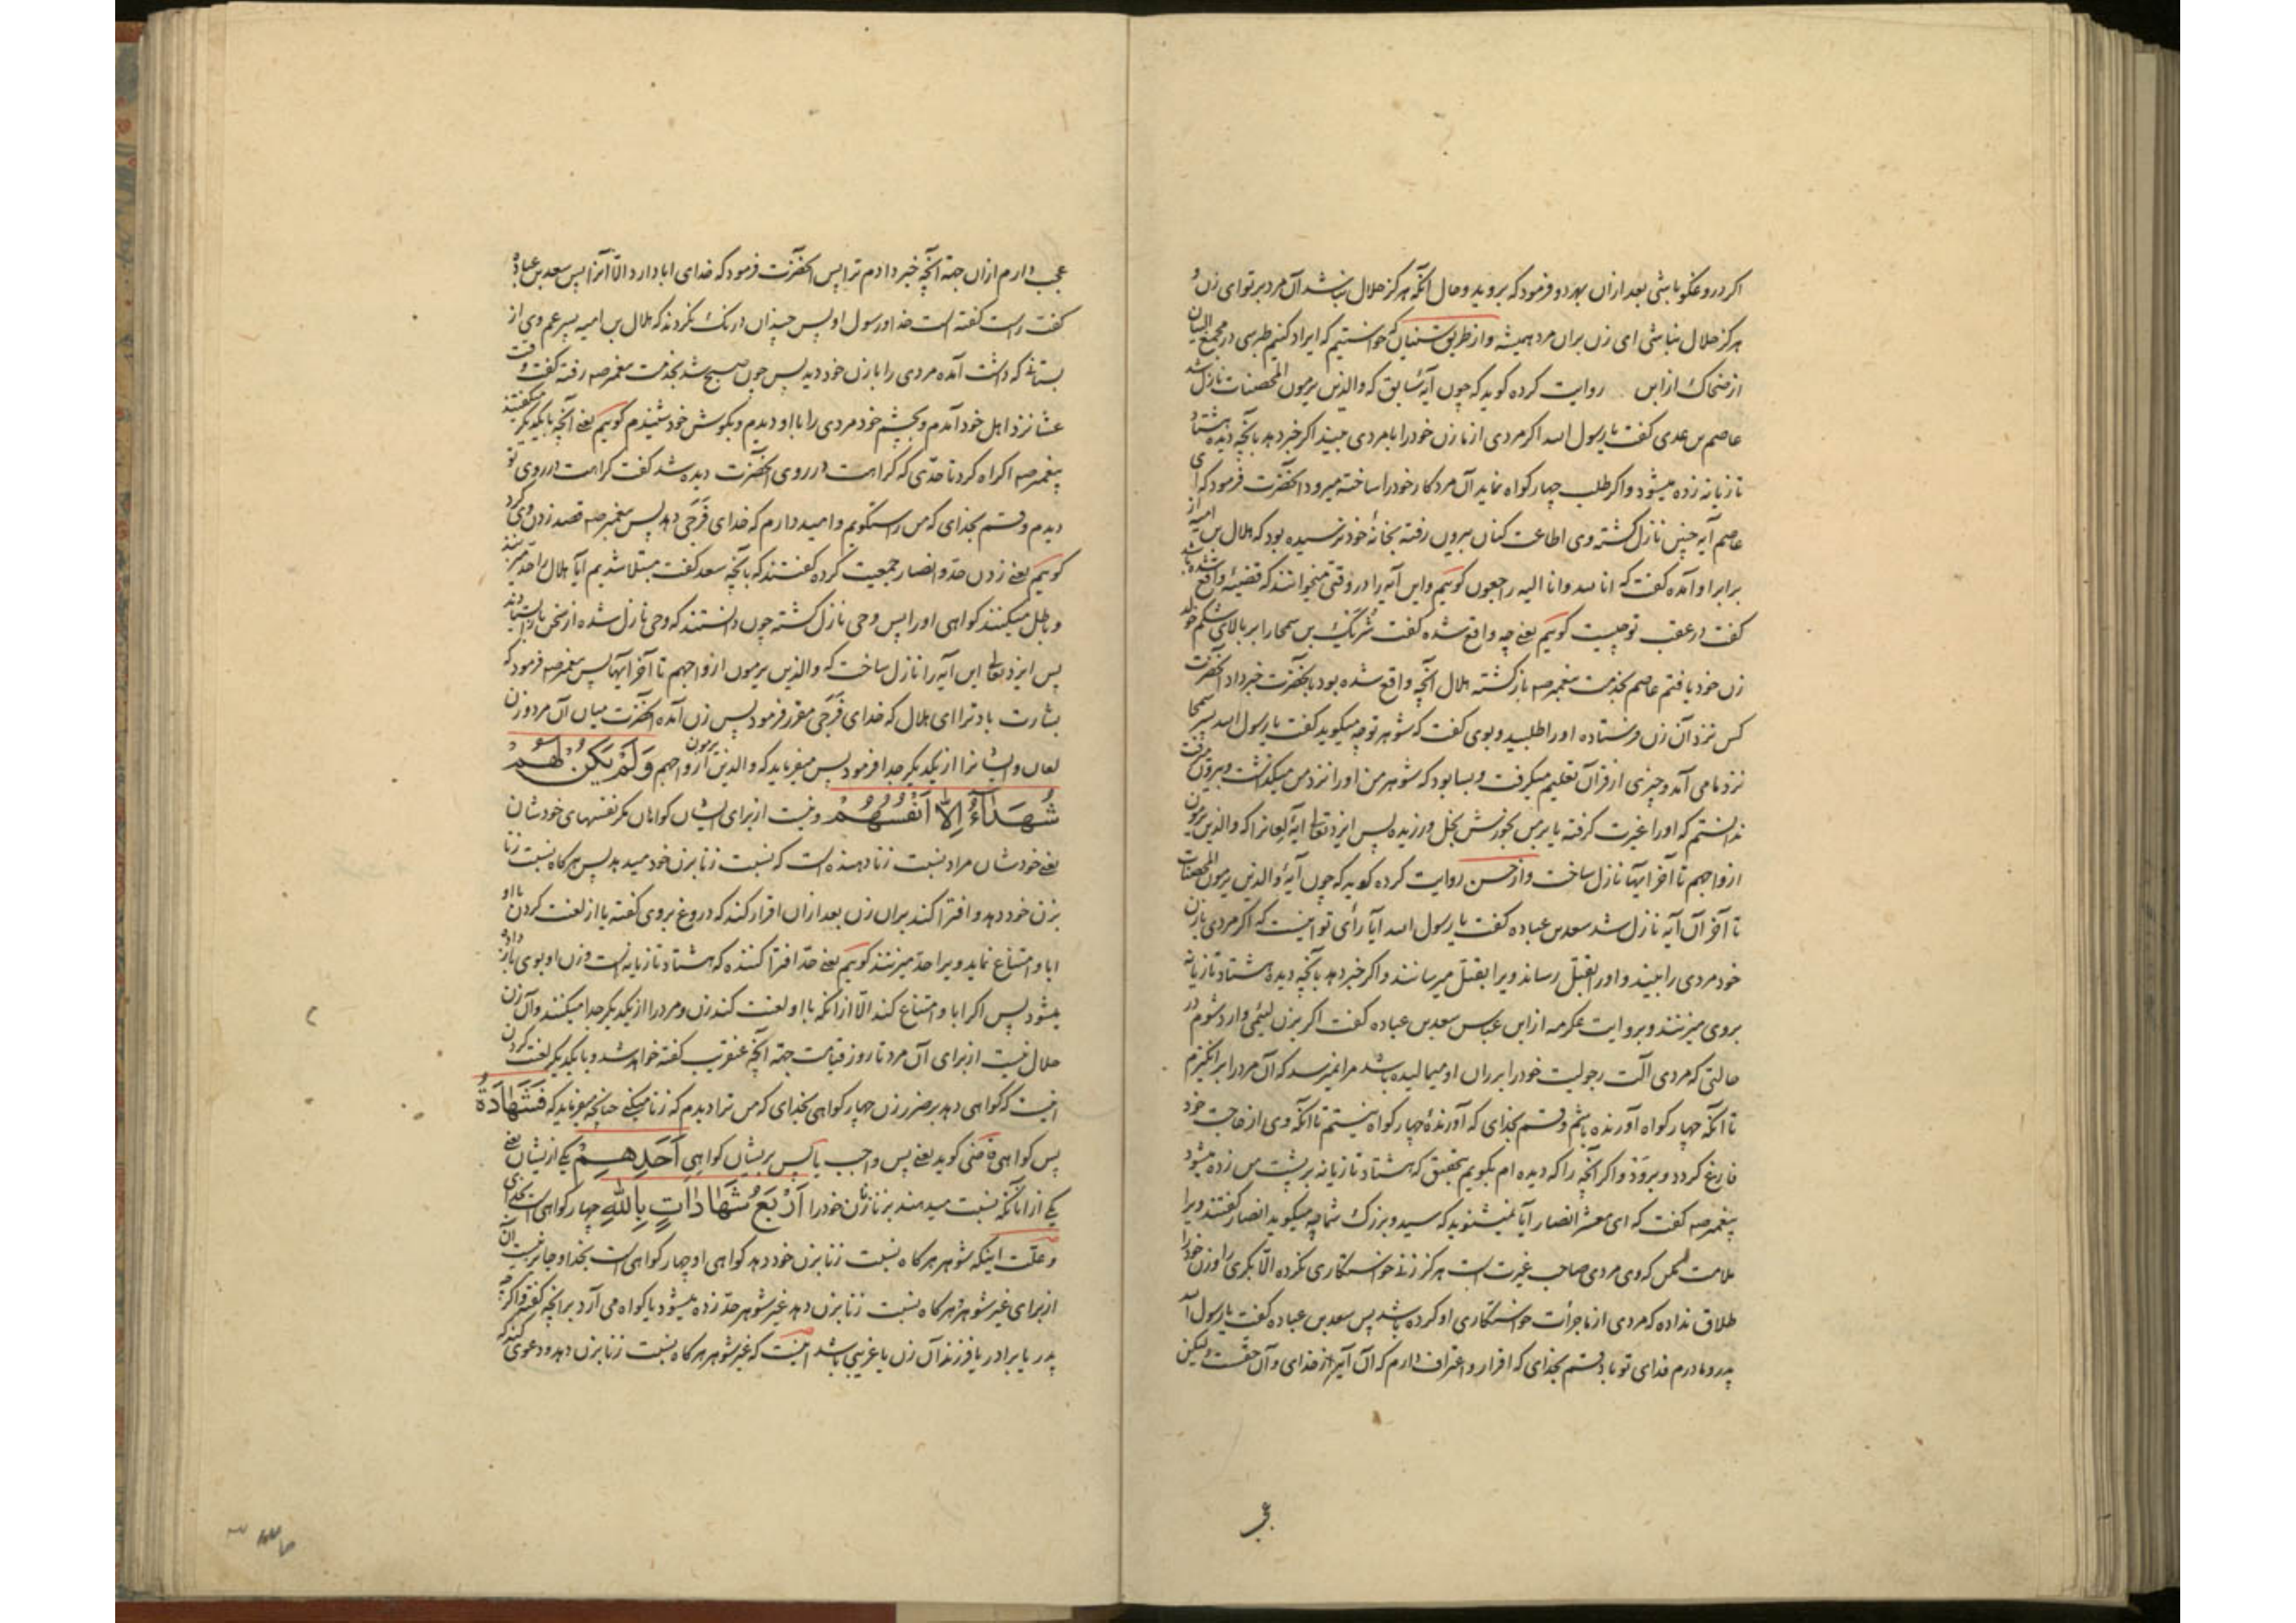 اکر دروغکو باشی بعد ازان بهر دو فرمود که بروید و حال آنکه هرکز حلال نباشد آن مرد بر تو ای زن و
هرکز حلال نباشی ای زن بران مرد همیشه و از طریق سنیان که خواستیم که ایراد کنیم طبرسی در مجمع البیان
از ضحاک از ابن روایت کرده کوید که چون آیهٔ سابق که والذین یرمون المحصنات نازل شد
عاصم بن عدی کفت یا رسول الله اکر مردی از ما زن خود را با مردی ببیند اکر خبر دهد بآنچه دیده هشتاد
تازیانه زده میشود و اکر طلب چهار کواه نماید آن مرد کار خود را ساخته میرود آنحضرت فرمود که ای
عاصم آیه چنین نازل کشته وی اطاعت کنان بیرون رفته بخانهٔ خود نرسیده بود که هلال بن امیه از
برابر او آمده کفت که انا لله وانا الیه راجعون کوییم و این آیه را در وقتی میخوانند که قضیهٔ واقع شده باشد
کفت در عقب تو چیست کوییم یعنے چه واقع شده کفت شریک بن سمحا را بر بالای شکم خوله
زن خود یافتم عاصم بخدمت پیغمبر صه بازکشته هلال آنچه واقع شده بود بآنحضرت خبر داد آنحضرت
کس نزد آن زن فرستاده او را طلبید و بوی کفت که شوهر تو چه میکوید کفت یا رسول الله پسر سمحا
نزد ما می آمد و چیزی از قرآن تعلیم میکرفت و بسا بود که شوهر من او را نزد من میکذاشت و بیرون میرفت
ندانستم که او را غیرت کرفته یا بر من بخورش بخل ورزیده پس ایزد تعالے آیهٔ لعانرا که والذین یرمون
ازواجهم تا آخر ایها نازل ساخت و از حسن روایت کرده کوید که چون آیهٔ والذین یرمون المحصنات
تا آخر آن آیه نازل شد سعد بن عباده کفت یا رسول الله آیا رأی تو اینست که اکر مردی با زن
خود مردی را ببیند و او را بقتل رساند ویرا بقتل میرسانند و اکر خبر دهد بآنچه دیده هشتاد تازیانه
بروی میزنند و بروایت عکرمه از ابن عباس سعد بن عباده کفت اکر بزن لئیمی وارد شوم در
حالتی که مردی آلت رجولیت خود را بر ران او میمالیده باشد مرا نمیرسد که آن مرد را برانکیزم
تا آنکه چهار کواه آورنده باشم و قسم بخدای که آورندهٔ چهار کواه نیستم تا آنکه وی از حاجت خود
فارغ کردد و برود و اکر آنچه را که دیده ام بکویم بتحقیق که هشتاد تازیانه بر پشت من زده میشود
پیغمبر صه کفت که ای معشر انصار آیا نمیشنوید که سید و بزرک شما چه میکوید انصار کفتند ویرا
ملامت مکن که وی مردی صاحب غیرت است هرکز زنے خواستکاری نکرده الّا بکری را و زن خود را
طلاق نداده که مردی از ما جرأت خواستکاری او کرده باشد پس سعد بن عباده کفت یا رسول الله
پدر و مادرم فدای تو باد قسم بخدای که اقرار و اعتراف دارم که آن آیه از خدای و آن حقست ولیکن
عج
عجب دارم ازان جهة آنچه خبر دادم ترا پس آنحضرت فرمود که خدای ابا دارد الّا آنرا پس سعد بن عباده
کفت راست کفته است خدا و رسول او پس چندان درنک نکردند که هلال بن امیه پسر عم وی از
بستانے که داشت آمده مردی را با زن خود دید پس چون صبح شد بخدمت پیغمبر صه رفته کفت وقت
عشا نزد اهل خود آمدم و بچشم خود مردی را با او دیدم و بکوش خود شنیدم کوییم یعنے آنچه با یکدیکر میکفتند
پیغمبر صه اکراه کرد تا حدّی که کراهت در روی آنحضرت دیده شد کفت کراهت در روی تو
دیدم و قسم بخدای که من راستکویم و امید دارم که خدای فَرَجی دهد پس پیغمبر صه قصد زدن وی کرد
کوییم یعنے زدن حدّ و انصار جمعیت کرده کفتند که بآنچه سعد کفت مبتلا شدیم آیا هلال را حدّ میزنند
و باطل میکنند کواهی او را پس وحی نازل کشته چون دانستند که وحی نازل شده از سخن باز ایستادند
پس ایزد تعالے این آیه را نازل ساخت که والذین یرمون ازواجهم تا آخر ایها پس پیغمبر صه فرمود که
بشارت باد ترا ای هلال که خدای فَرَجی مقرر فرمود پس زن آمده آنحضرت میان آن مرد و زن
لعان و ایشانرا از یکدیکر جدا فرمود پس میفرماید که والذین یرمون ازواجهم وَلَمْ یَکُنْ لَهُمْ
شُهَدَآءُ اِلّا اَنْفُسُهُمْ و نیست از برای ایشان کواهان مکر نفسهای خودشان
یعنے خودشان مراد نسبت زنا دهنده است که نسبت زنا بزن خود میدهد پس هرکاه نسبت زنا
بزن خود دهد و افترا کند بران زن بعد ازان اقرار کند که دروغ بروی کفته یا از لعنت کردن با او
ابا و امتناع نماید ویرا حدّ میزنند کوییم یعنے حدّ افترا کننده که هشتاد تازیانه است و زن او بوی باز داده
میشود پس اکر ابا و امتناع کند الّا از آنکه با او لعنت کند زن و مرد را از یکدیکر جدا میکنند و آن زن
حلال نیست از برای آن مرد تا روز قیامت جهة آنچه عنقریب کفته خواهد شد و با یکدیکر لعنت کردن
اینست که کواهی دهد بر ضرر زن چهار کواهی بخدای که من ترا دیدم که زنا میکنے چنانچه میفرماید که فَشَهَادَةُ
پس کواهی قاضی کوید یعنے پس واجب یا پس بریشان کواهی اَحَدِهِمْ یکے ازیشان یعنے
یکے از آنانکه نسبت میدهند بزنا زن خود را اَرْبَعُ شَهَادَاتٍ بِاللّٰهِ چهار کواهی است بخدای
و علّت اینکه شوهر هرکاه نسبت زنا بزن خود دهد کواهی او چهار کواهی است بخدا و جایز نیست آن
از برای غیر شوهر و هرکاه نسبت زنا بزن دهد غیر شوهر حدّ زده میشود یا کواه می آرد بر آنچه کفته و اکرچه
پدر یا برادر یا فرزند آن زن یا غریبی باشد اینست که غیر شوهر هرکاه نسبت زنا بزن دهد و دعوی کند که